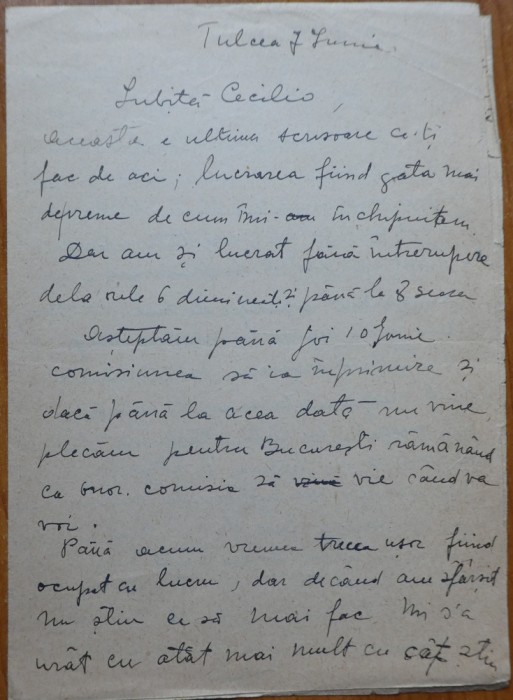 Tulcea 7 Iunie.
Iubită Cecilio,
aceasta e ultima scrisoare ce-ți
fac de aci; lucrarea fiind gata mai
depreme de cum îmi-am închipuitem
Dar am și lucrat fără întrerupere
dela orele 6 dimineață până la 8 seara
Așteptăm până Joi 10 Iunie.
comisiunea să ia în primire și
dacă până la acea dată nu vine,
plecăm pentru București rămânând
ca onor. comisie să vină vie când va
voi.
Până acum vremea trecea ușor fiind
ocupat cu lucru, dar decând am sfârșit
nu știu ce să mai fac. Mi s'a
urât cu atât mai mult cu cât știu